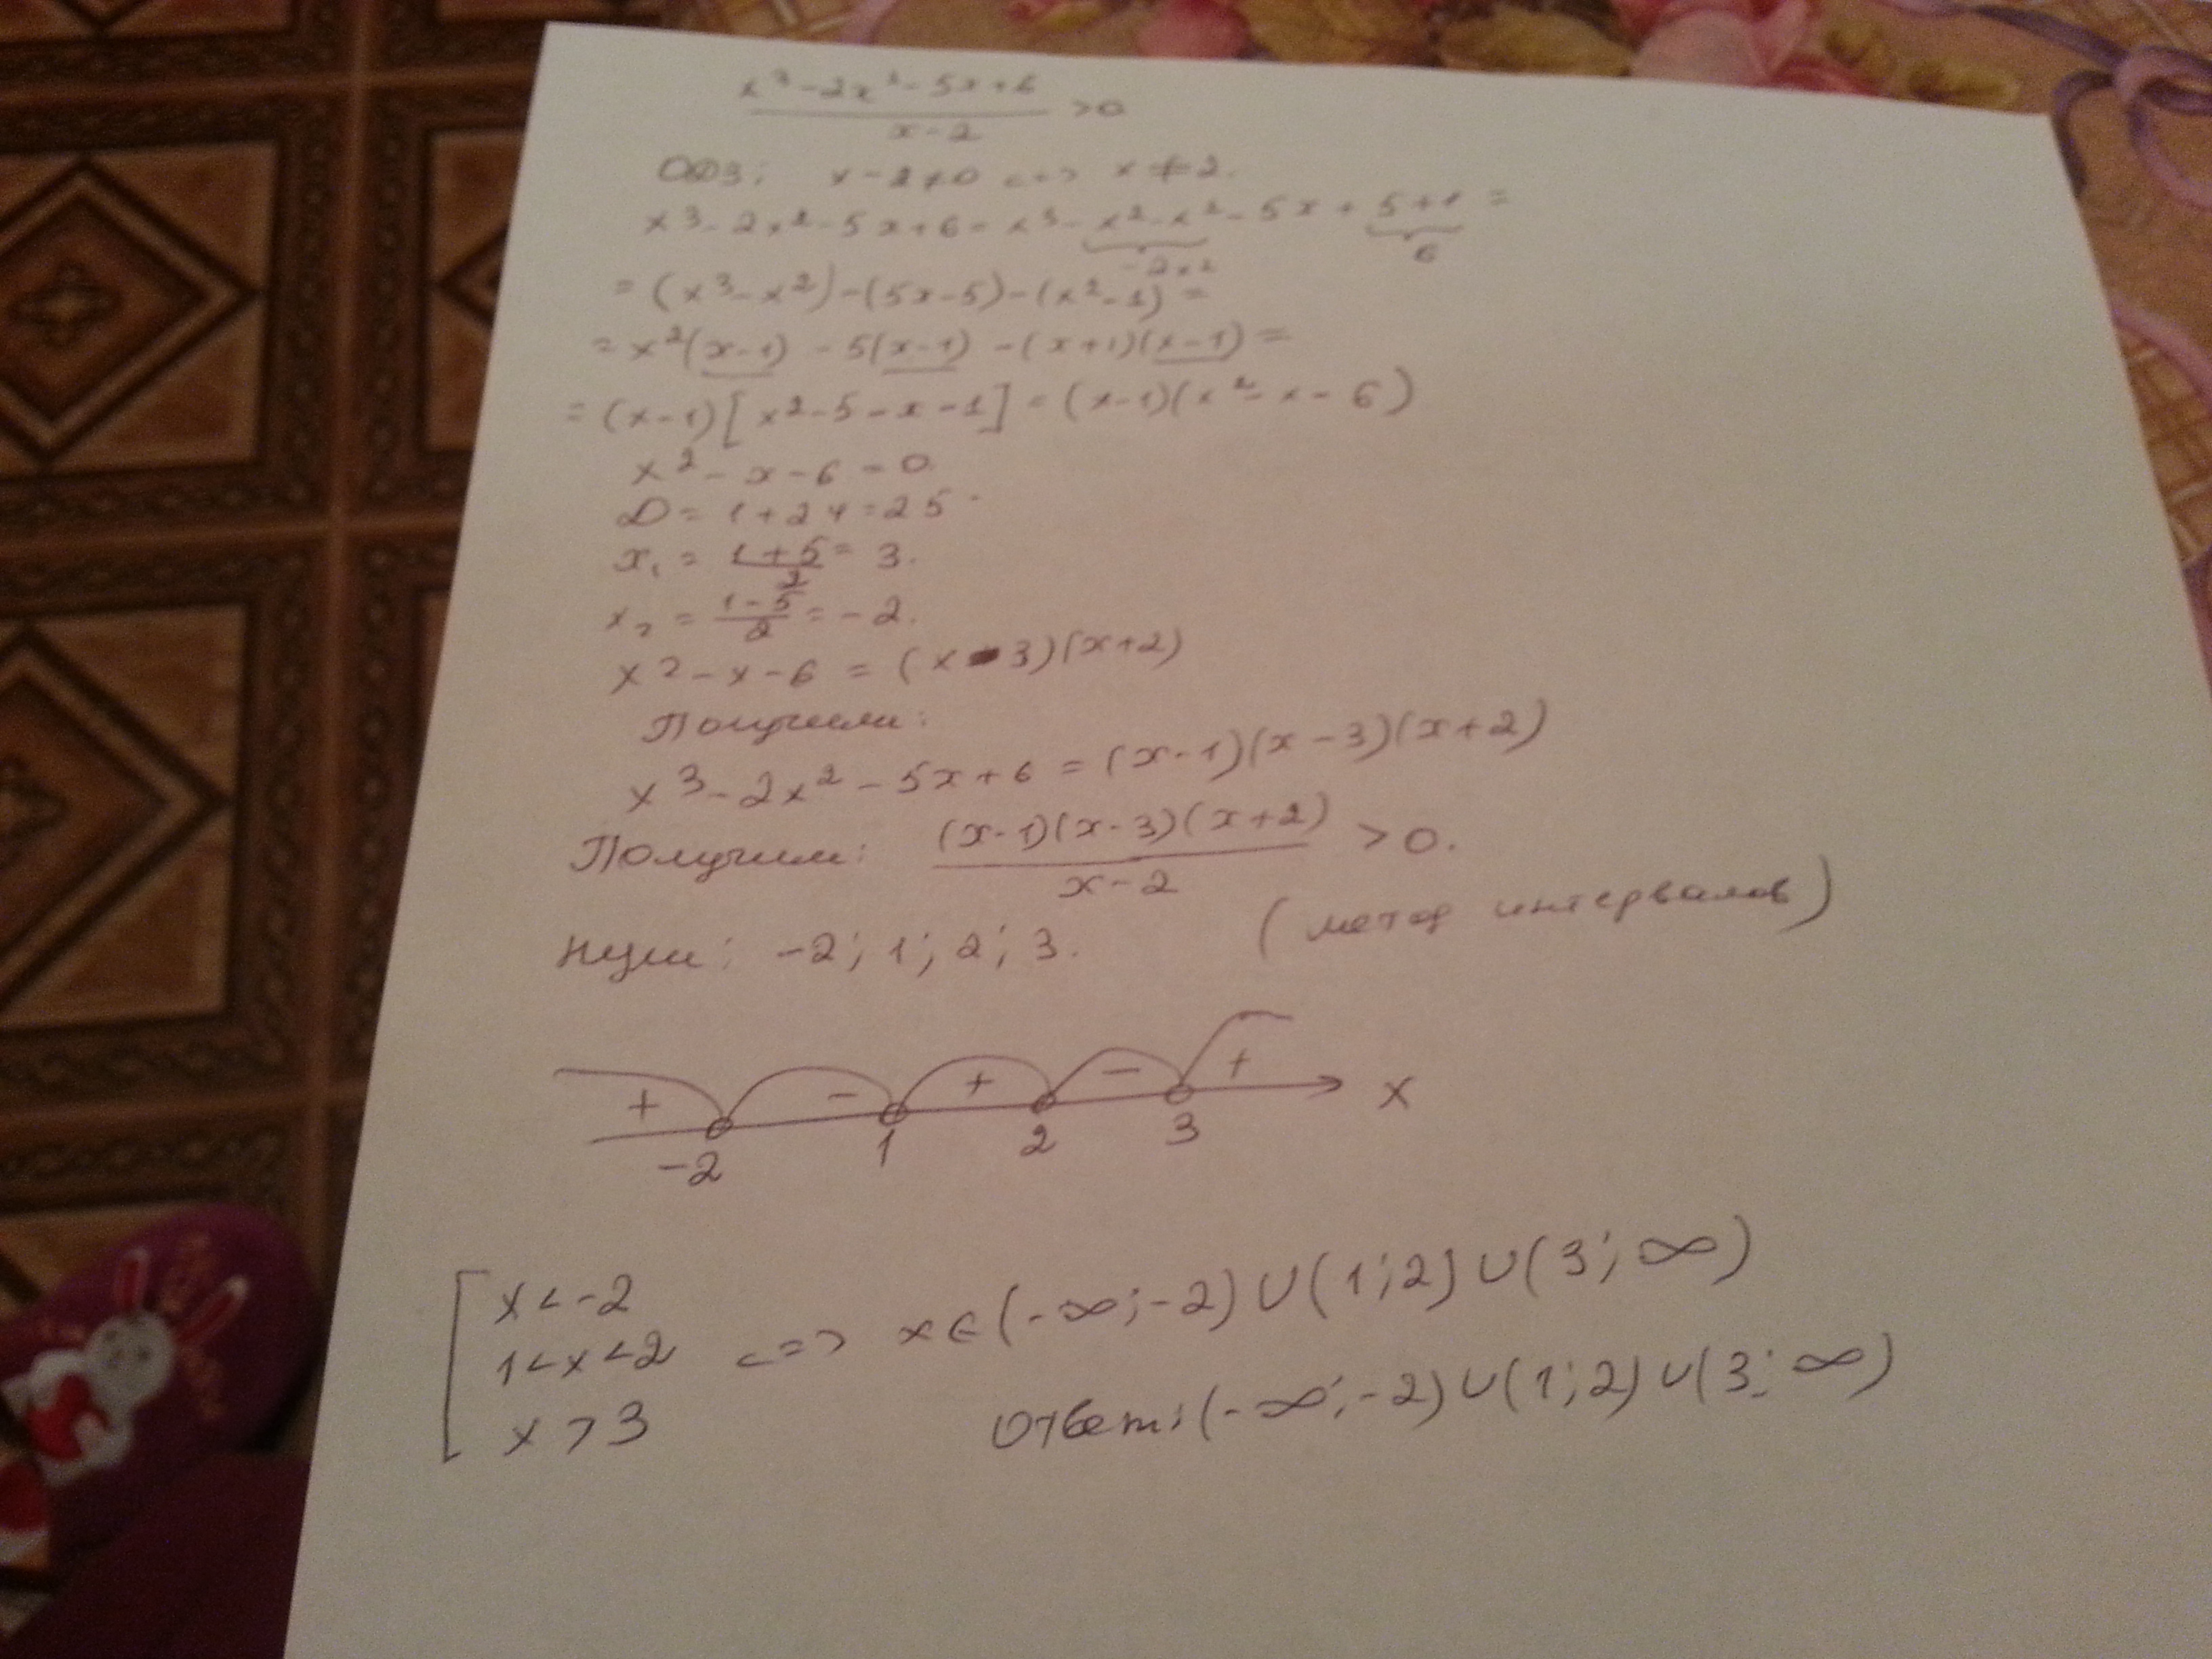 x³-2x²-5x+6
x-2
>0
ОДЗ: x-2≠0 <=> x≠2.
x³-2x²-5x+6=x³-x²-x²-5x+5+1=
-2x²
6
=(x³-x²)-(5x-5)-(x²-1)=
=x²(x-1)-5(x-1)-(x+1)(x-1)=
=(x-1)[x²-5-x-1]=(x-1)(x²-x-6)
x²-x-6=0.
D=1+24=25.
x₁=(1+5)/2=3.
x₂=(1-5)/2=-2.
x²-x-6=(x-3)(x+2)
Получили:
x³-2x²-5x+6=(x-1)(x-3)(x+2)
Получим: (x-1)(x-3)(x+2)/(x-2) >0.
Нули: -2; 1; 2; 3. (метод интервалов)
+ - + - +
-2 1 2 3 x
[ x<-2
1<x<2 <=> x∈(-∞;-2)∪(1;2)∪(3;∞)
x>3
Ответ: (-∞;-2)∪(1;2)∪(3;∞)